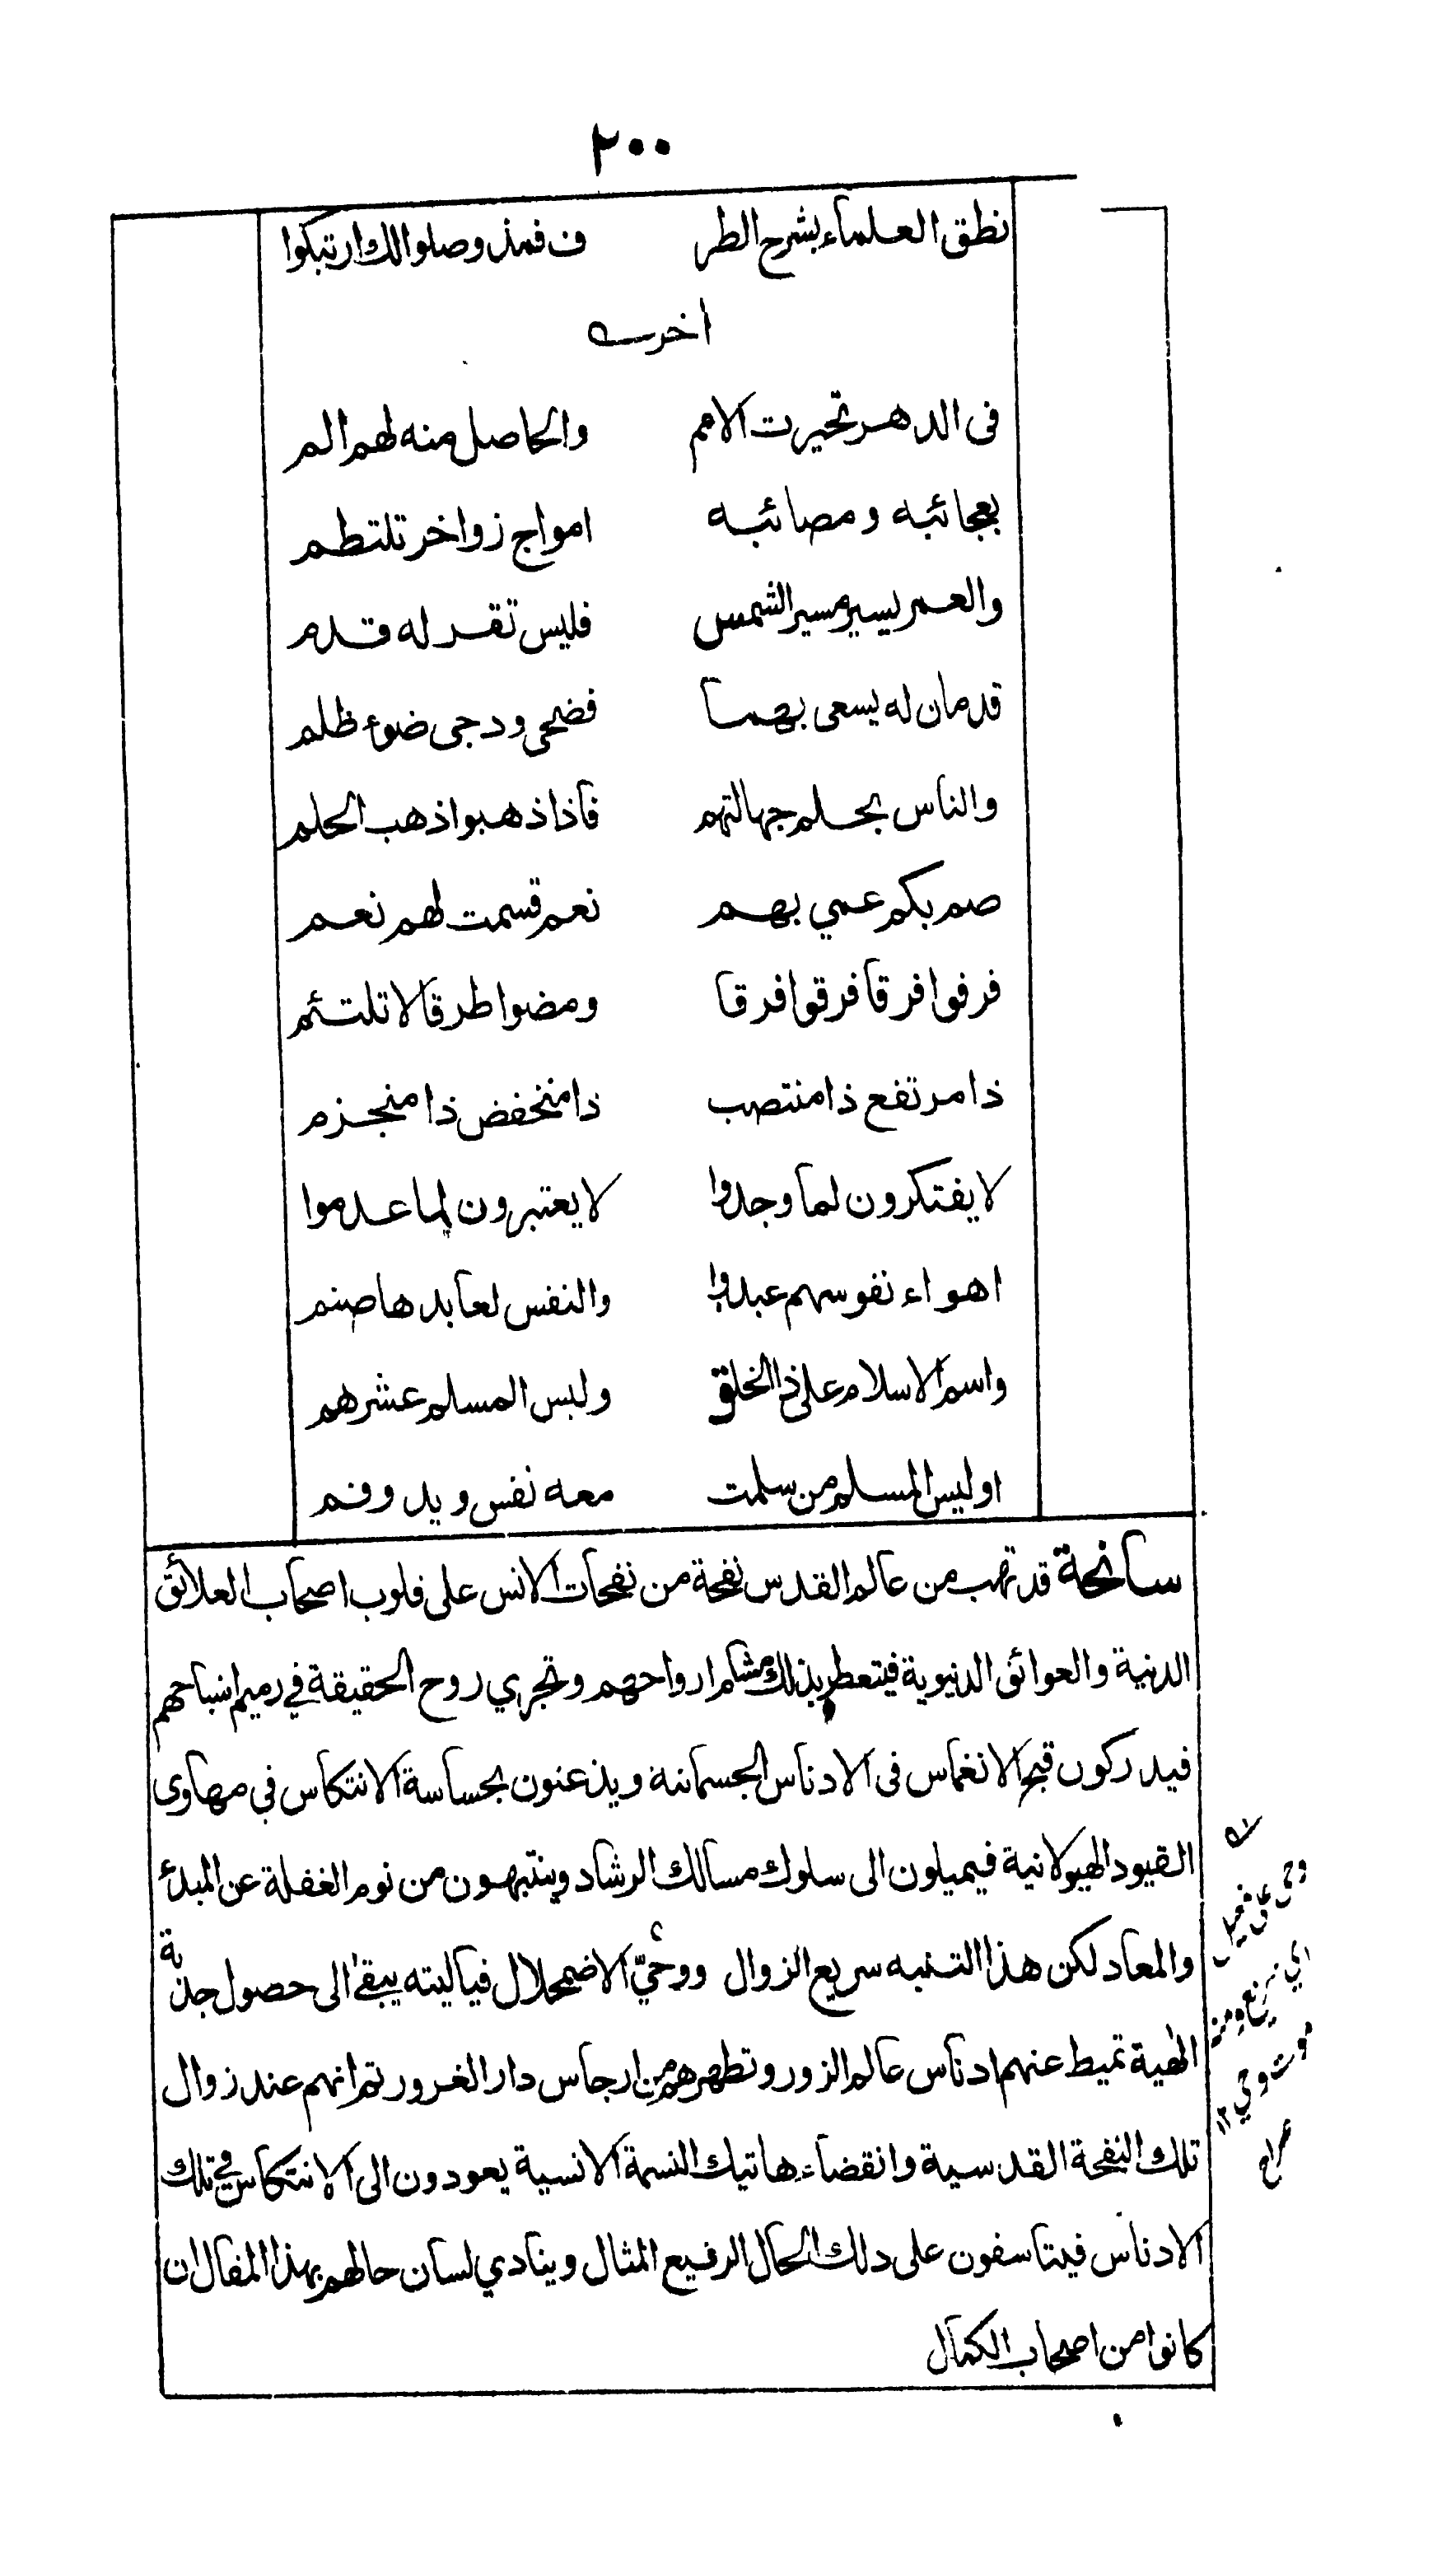 ٢٠٠
نطق العلماء بشرح الطر ف فمذ وصلوا لك ارتبكوا
اخرى
فى الدهر تحيرت الامم والحاصل منه لهم الم
بعجائبه ومصائبه امواج زواخر تلتطم
والعمر يسير مسير الشمس فليس تقر له قدم
قدمان له يسعى بهما فضحى ودجى ضوء ظلم
والناس بحلم جهالتهم فاذا ذهبوا ذهب الحلم
صم بكم عمي بهم نعم قسمت لهم نعم
فرقوا فرقا فرقوا فرقا ومضوا طرقا لا تلتئم
ذا مرتفع ذا منتصب ذا منخفض ذا منجزم
لا يفتكرون لما وجدوا لا يعتبرون لما عدموا
اهواء نفوسهم عبدوا والنفس لعابدها صنم
واسم الاسلام على ذا الخلق وليس المسلم عشرهم
او ليس المسلم من سلمت معه نفس ويد وفم
سانحة قد تهب من عالم القدس نفحة من نفحات الانس على قلوب اصحاب العلائق
الدنية والعوائق الدنيوية فيتعطر بذلك مشام ارواحهم وتجري روح الحقيقة في رميم اشباحهم
فيدركون قبح الانغماس فى الادناس الجسمانية ويذعنون بخساسة الانتكاس في مهاوى
القيود الهيولانية فيميلون الى سلوك مسالك الرشاد وينتبهون من نوم الغفلة عن المبدء
والمعاد لكن هذا التنبه سريع الزوال ووحيّ الاضمحلال فياليته يبقى الى حصول جذبة
الهية تميط عنهم ادناس عالم الزور وتطهرهم من ارجاس دار الغرور ثم انهم عند زوال
تلك النفحة القدسية وانقضاء هاتيك النسمة الانسية يعودون الى الانتكاس في تلك
الادناس فيتاسفون على ذلك الحال الرفيع المثال وينادي لسان حالهم بهذا المقال ان
كانوا من اصحاب الكمال
وحي على فعيل
اي سريع ومنه
موت وحي ١٢
صراح